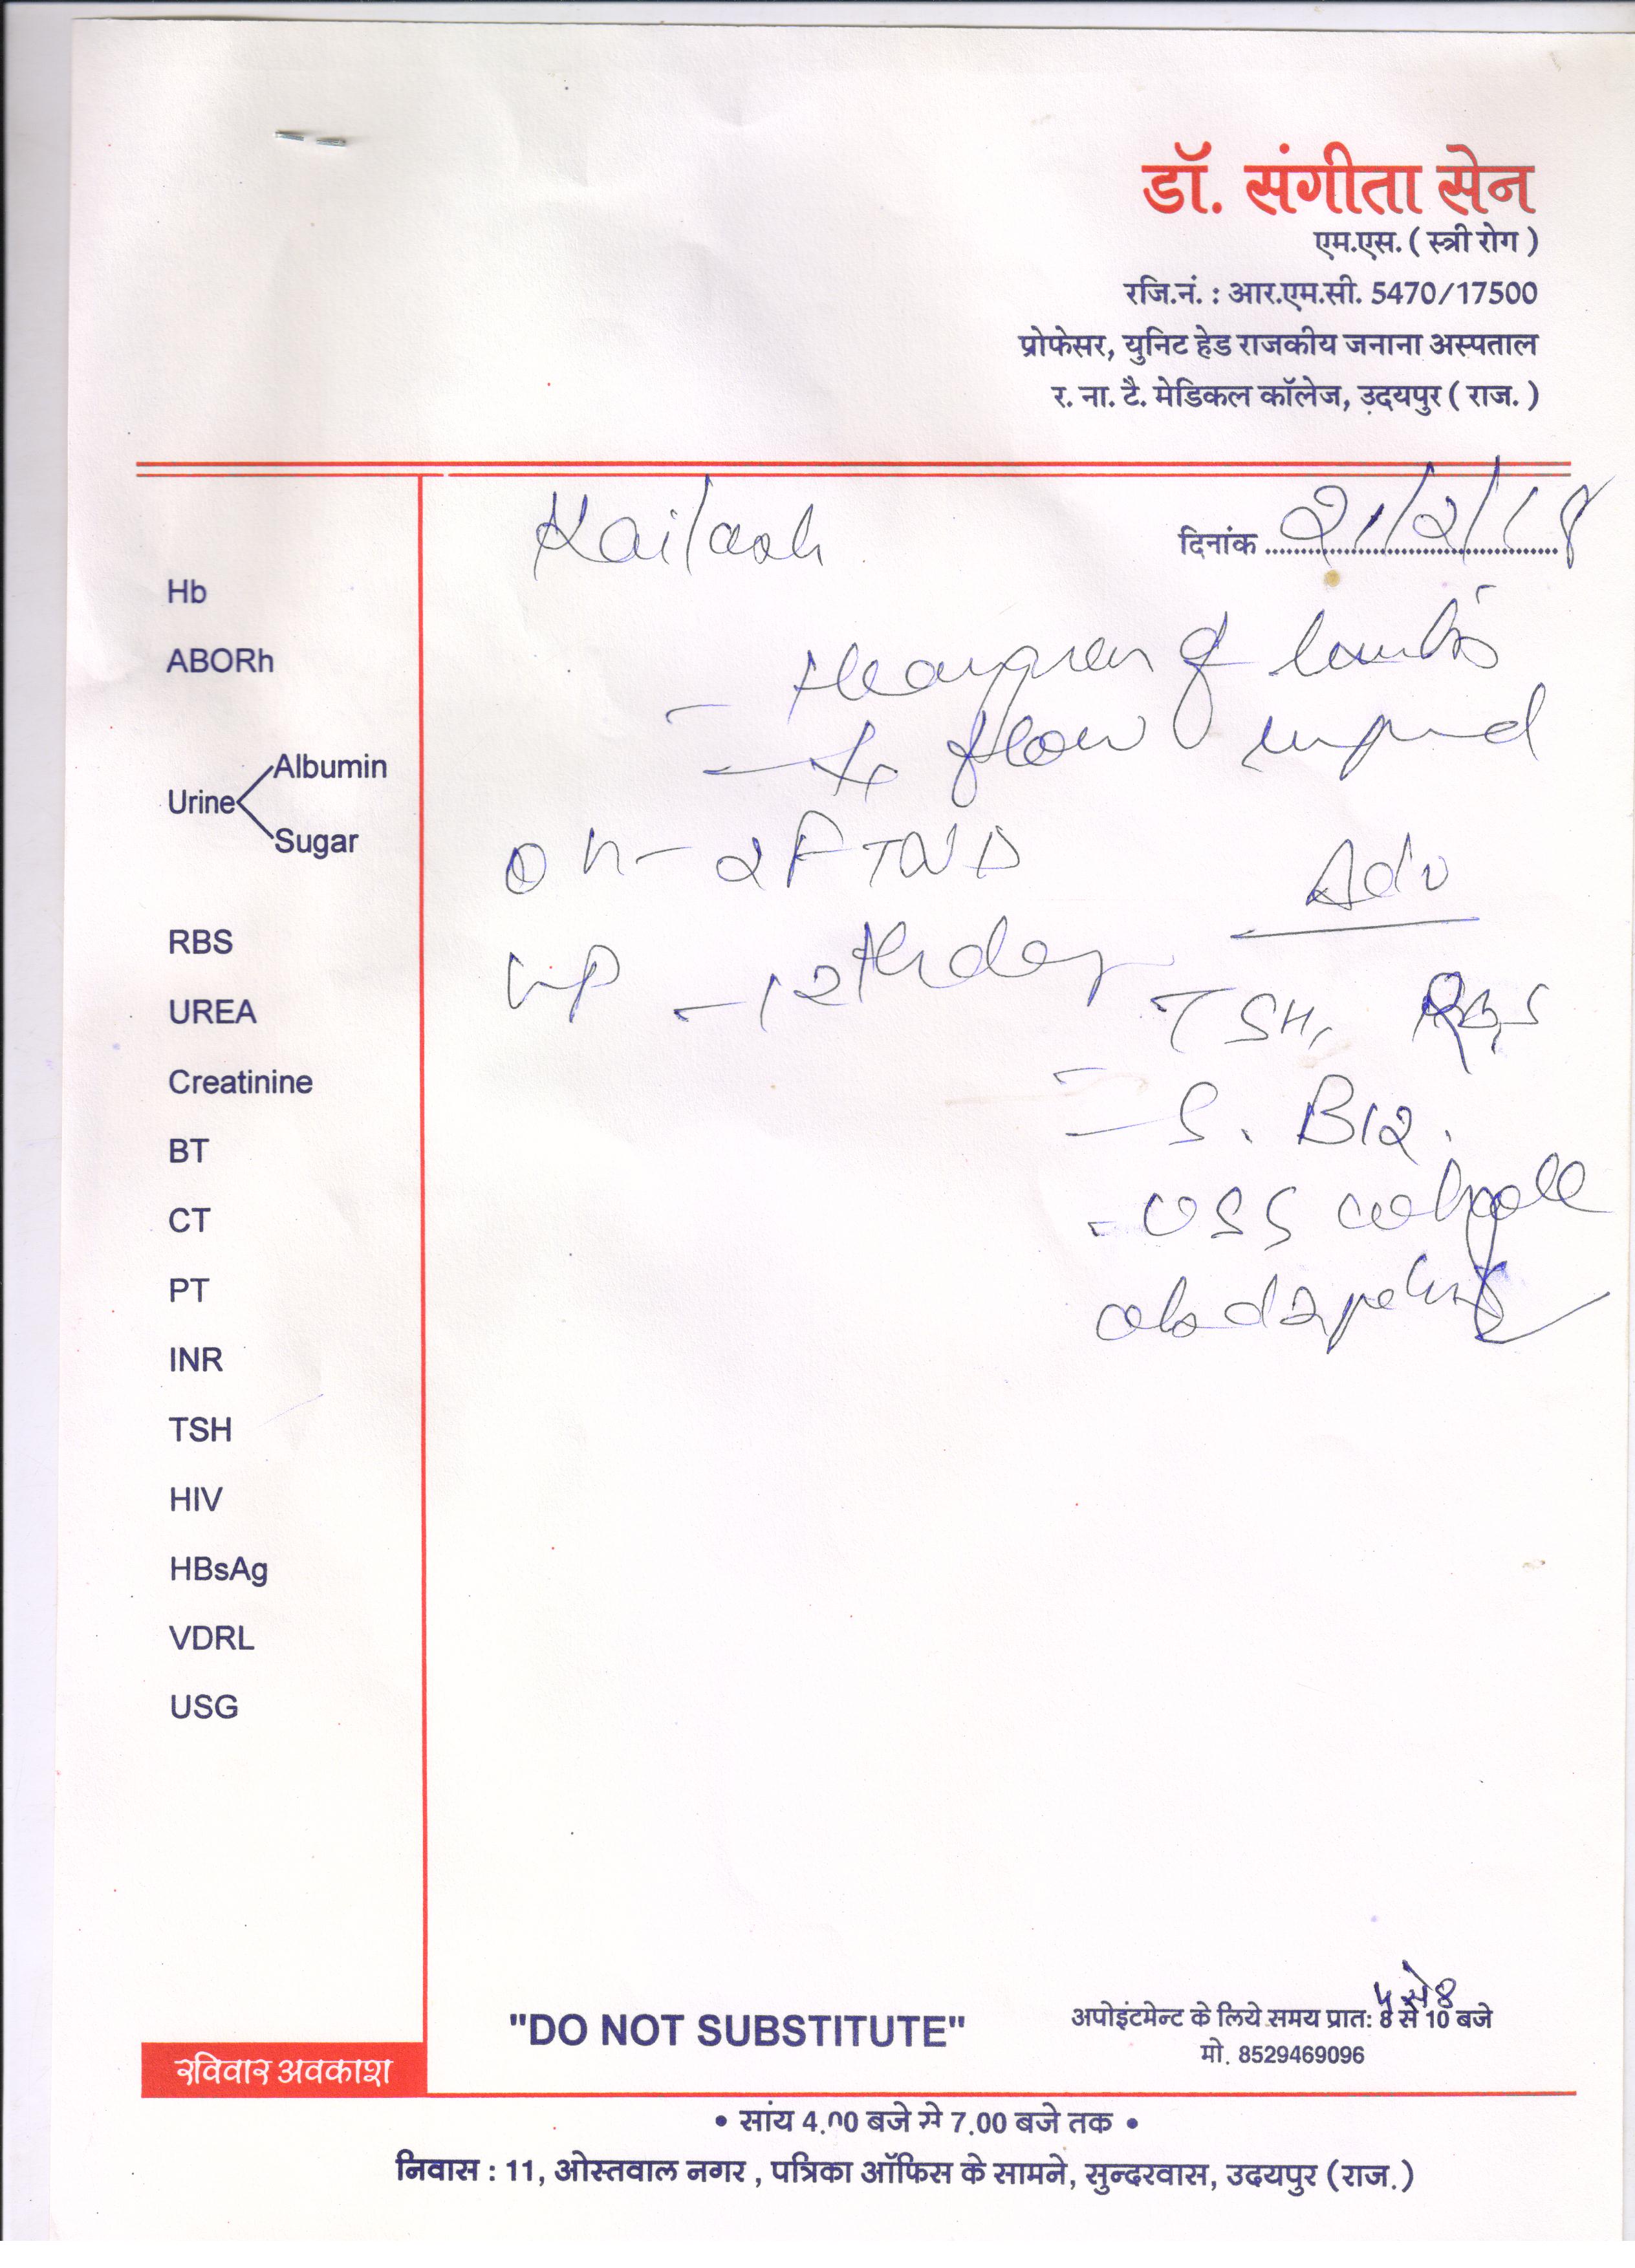 डॉ. संगीता सेन
एम.एस. ( स्त्री रोग )
रजि.नं. : आर.एम.सी. 5470/17500
प्रोफेसर, युनिट हेड राजकीय जनाना अस्पताल
र. ना. टै. मेडिकल कॉलेज, उदयपुर ( राज. )
Kailash
दिनांक 21/2/18
Hb
ABORh
Albumin
Urine
Sugar
RBS
UREA
Creatinine
BT
CT
PT
INR
TSH
HIV
HBsAg
VDRL
USG
of
flow
OH - 2 FTND
Adv
- 12th day
TSH, RBS
- S. B12.
"DO NOT SUBSTITUTE"
5 से 8
अपोइंटमेन्ट के लिये समय प्रात: 8 से 10 बजे
मो. 8529469096
रविवार अवकाश
• सांय 4.00 बजे से 7.00 बजे तक •
निवास : 11, ओस्तवाल नगर , पत्रिका ऑफिस के सामने, सुन्दरवास, उदयपुर (राज.)